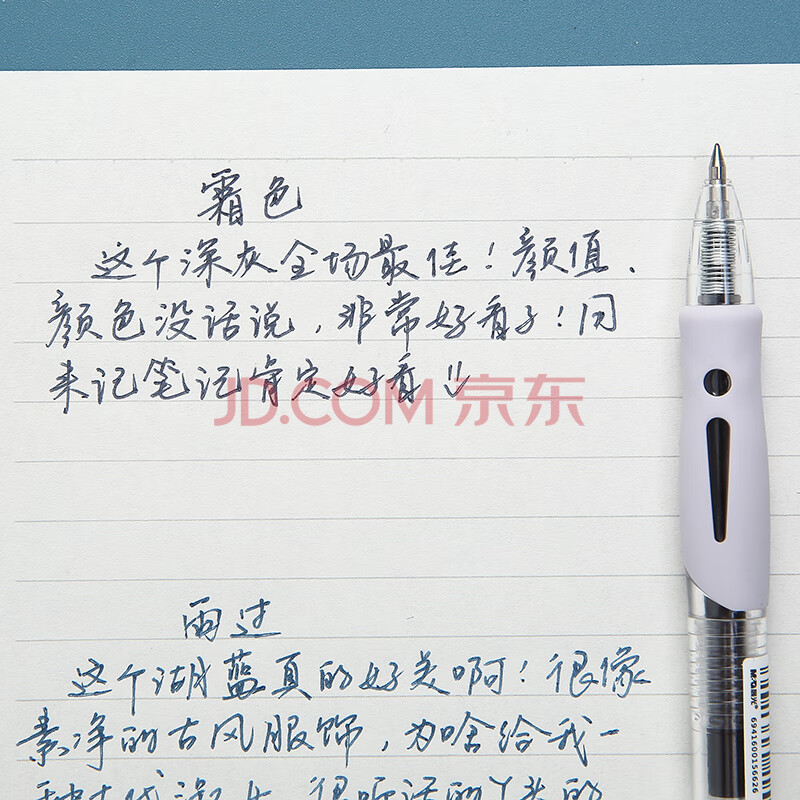 霜色
这个深灰全场最佳！颜值、
颜色没话说，非常好看子！闭
来记笔记肯定好看
JD.COM 京东
雨过
这个湖蓝真的好美啊！很像
素净的古风服饰，为啥给我一
很听话的丫头的
M&G 晨光
6941600156626